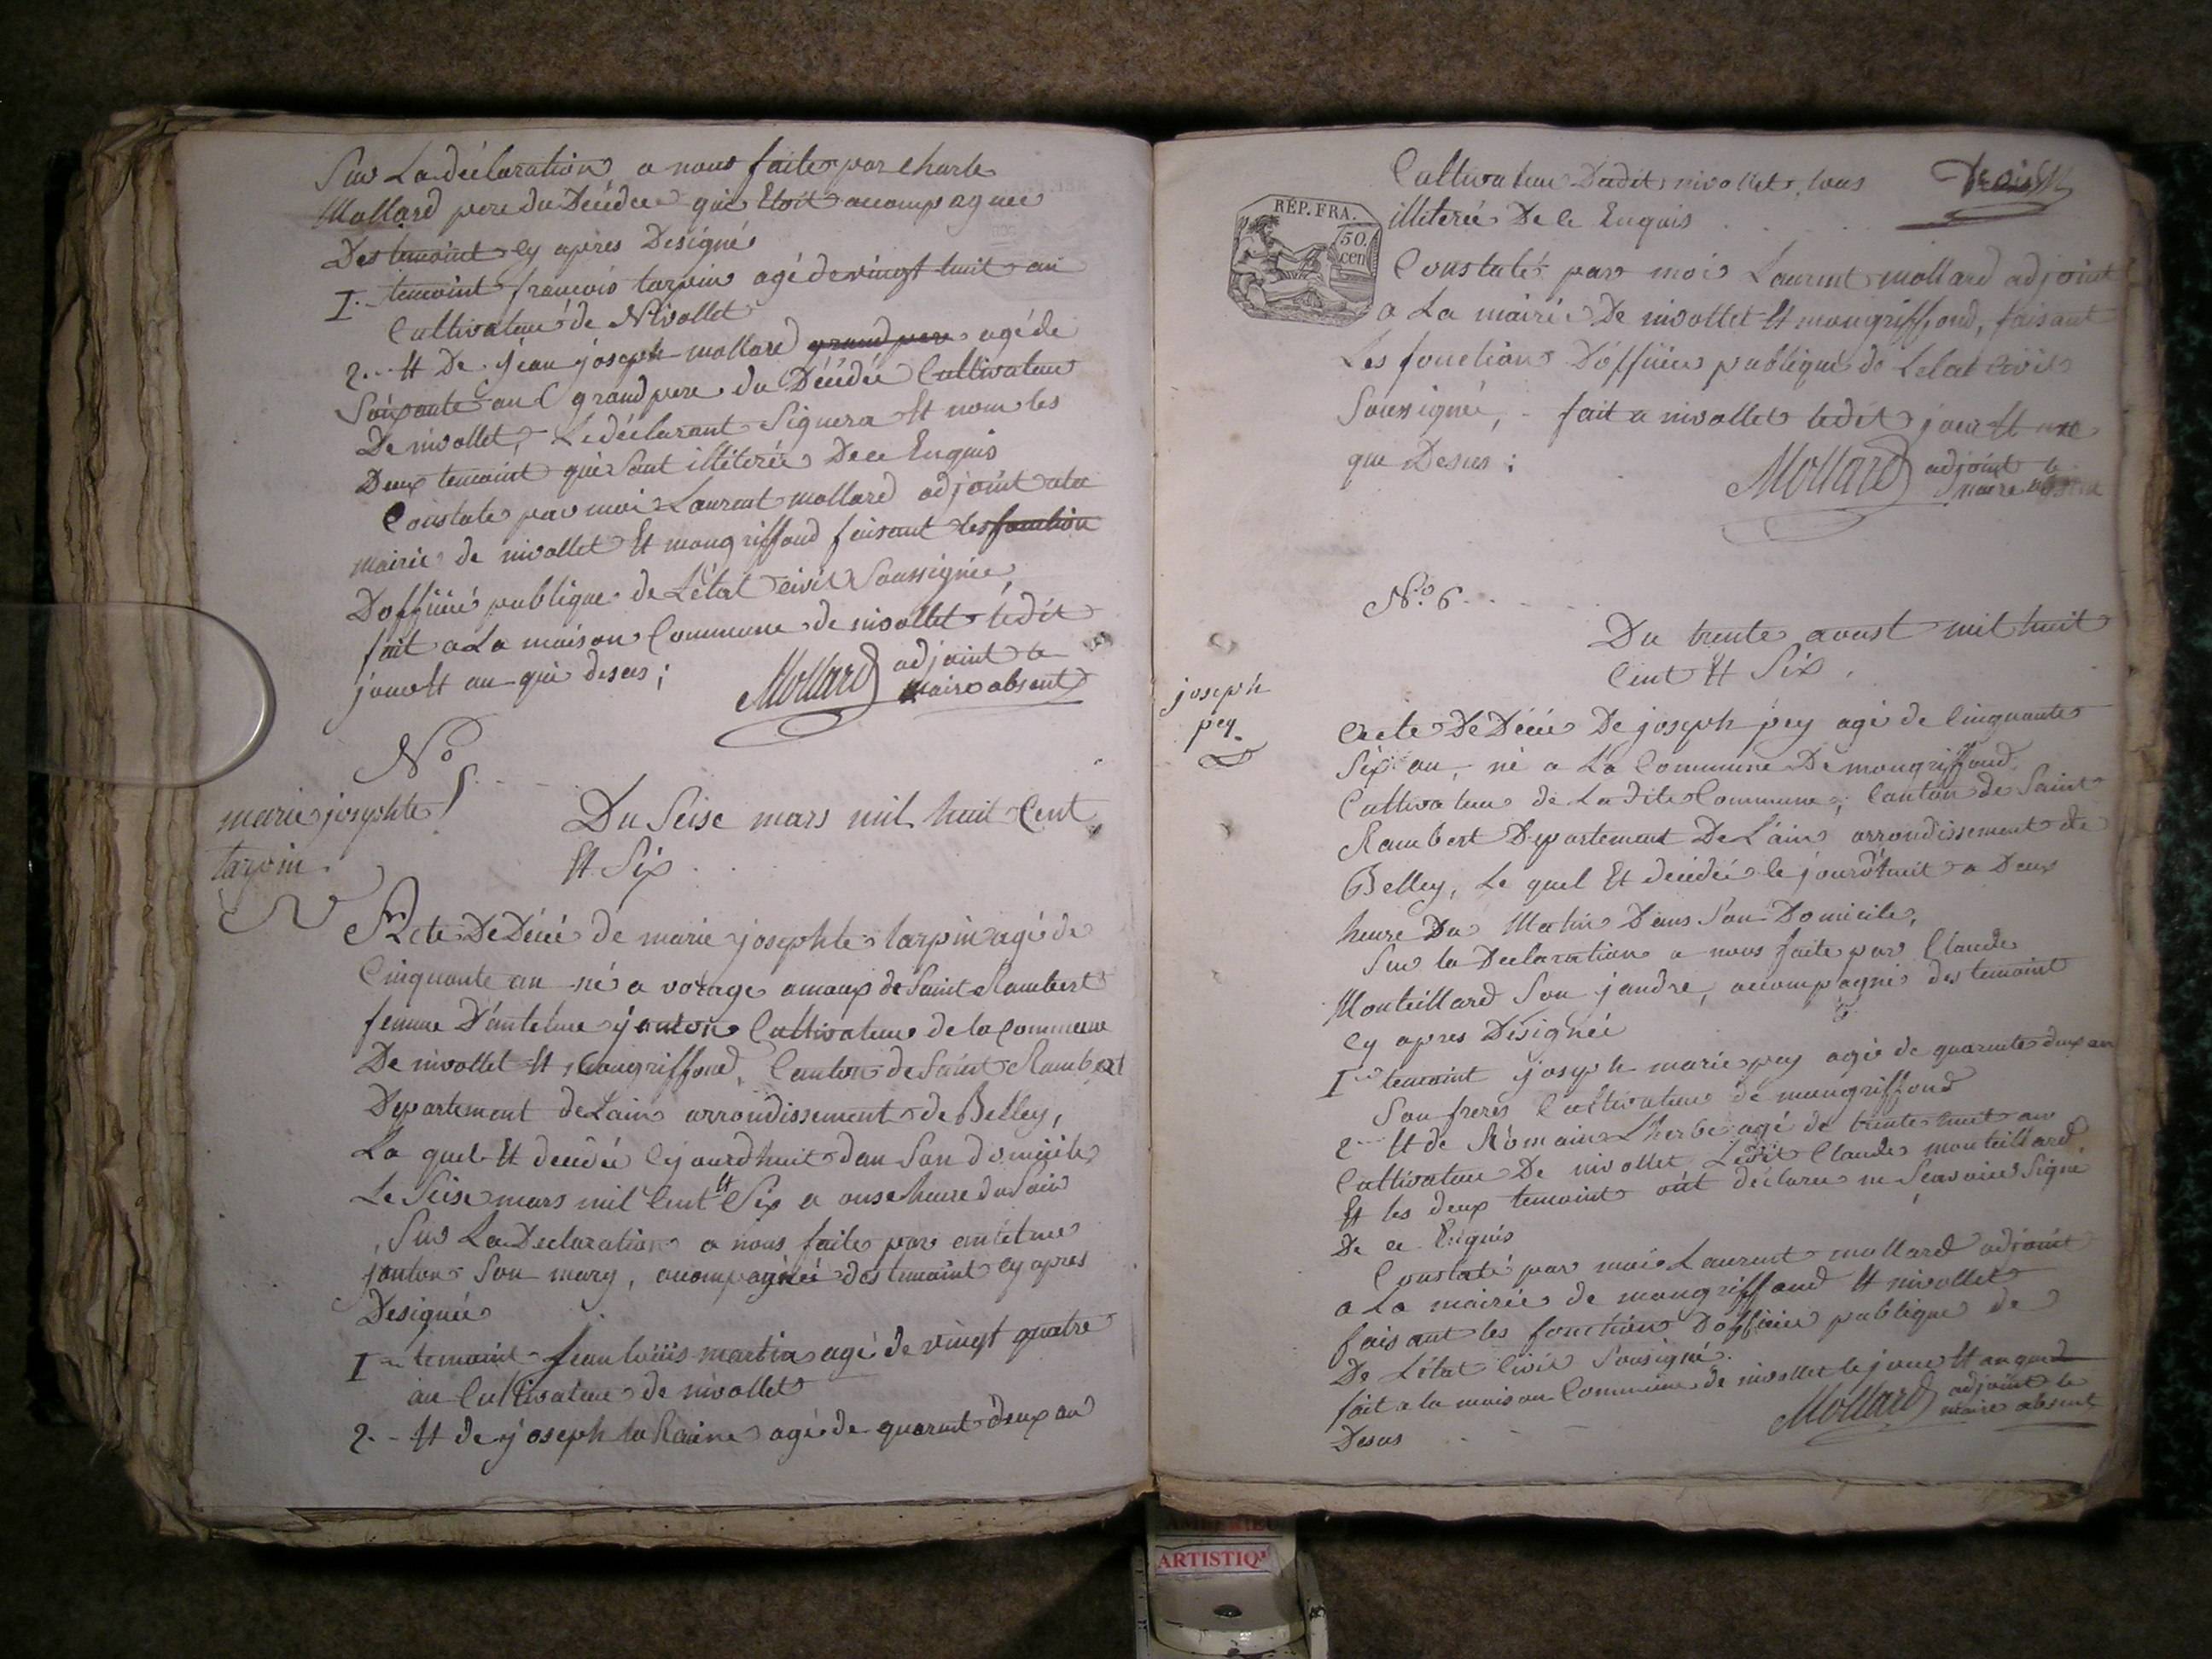 Sur La déclaration a nous faite par Charle
Mollard pere du Décédée qui Etoit accompagnée
Des temoint cy apres Designé
I. temoint francois tarpin agé de vingt huit an
Cultivateur de Nivollet
2. Et De jean joseph mollard grand pere agé de
Soixante an grand pere du Décédée Cultivateur
De nivollet, Le déclarant Signera Et non les
Deux temoint qui Sont illiterée De ce Enquis
Constate par moi Laurent mollard adjoint a la
mairie de nivollet Et mongriffond faisant les fonction
D'officié publique de L'état civil Soussignée,
fait a La maison Commune de nivollet ledit
jour Et an que desus ;
Mollard adjoint le
maire absent
No 5
marie josephte
tarpin
Du Seise mars mil huit Cent
Et Six
Acte De Décé de marie josephte tarpin agé de
Cinquante an né a vorage amaux de Saint Rambert
femme D'antelme janton Cultivateur de la commune
De nivollet Et mongriffond, Canton de Saint Rambert
Departement de Lain arrondissement de Belley,
La quel Et decedée cejourdhuit dan Son domicile
Le Seise mars mil Cent Et Six a onse heure du Soir
Sur La Declaration a nous faite par antelme
janton Son mary, accompagnée des temoint cy apres
Designée
I temoint jean loüis martin agé de vingt quatre
an Cultivateur de nivollet
2. Et de joseph la Raine agé de quarant deux an
Cultivateur Dudit nivollet, tous
Trois
RÉP. FRA.
50
cen
illiterée De ce Enquis
Constaté par moi Laurent mollard adjoint
a La mairie De nivollet Et mongriffond, faisant
Les fonction D'officier publique de Letat civil
Sousigné, fait a nivollet ledit jour Et an
que Desus ;
Mollard adjoint le
maire absent
No. 6
Du trente aoust mil huit
Cent Et Six.
joseph
pey
Acte De Décé De joseph pey agé de Cinquante
Six an, né a La Commune De mongriffond
Cultivateur de Ladite Commune, Canton de Saint
Rambert Departement De Lain arrondissement de
Belley, Le quel Et decédé le jourd'huit a Deux
heure Du Matin Dans Son Domicile,
Sur la Declaration a nous faite par Claude
Monteillard Son jandre, accompagné des temoint
Cy apres Designée
I temoint joseph marie pey agé de quarante deux an
Son frere Cultivateur de mongriffond
2 Et de Romain Lherbe agé de trente huit an
Cultivateur De nivollet, Ledit Claude monteillard
Et les deux temoint ont déclaree ne Scavoire Signé
De ce Enquis
Constaté par moi Laurent mollard adjoint
a La mairie de mongriffond Et nivollet
faisant les fonction D'officié publique de
De L'état Civil Sousigné.
fait a la maison Commune de nivollet le jour Et an que
Desus
Mollard adjoint le
maire absent
ARTISTIQ